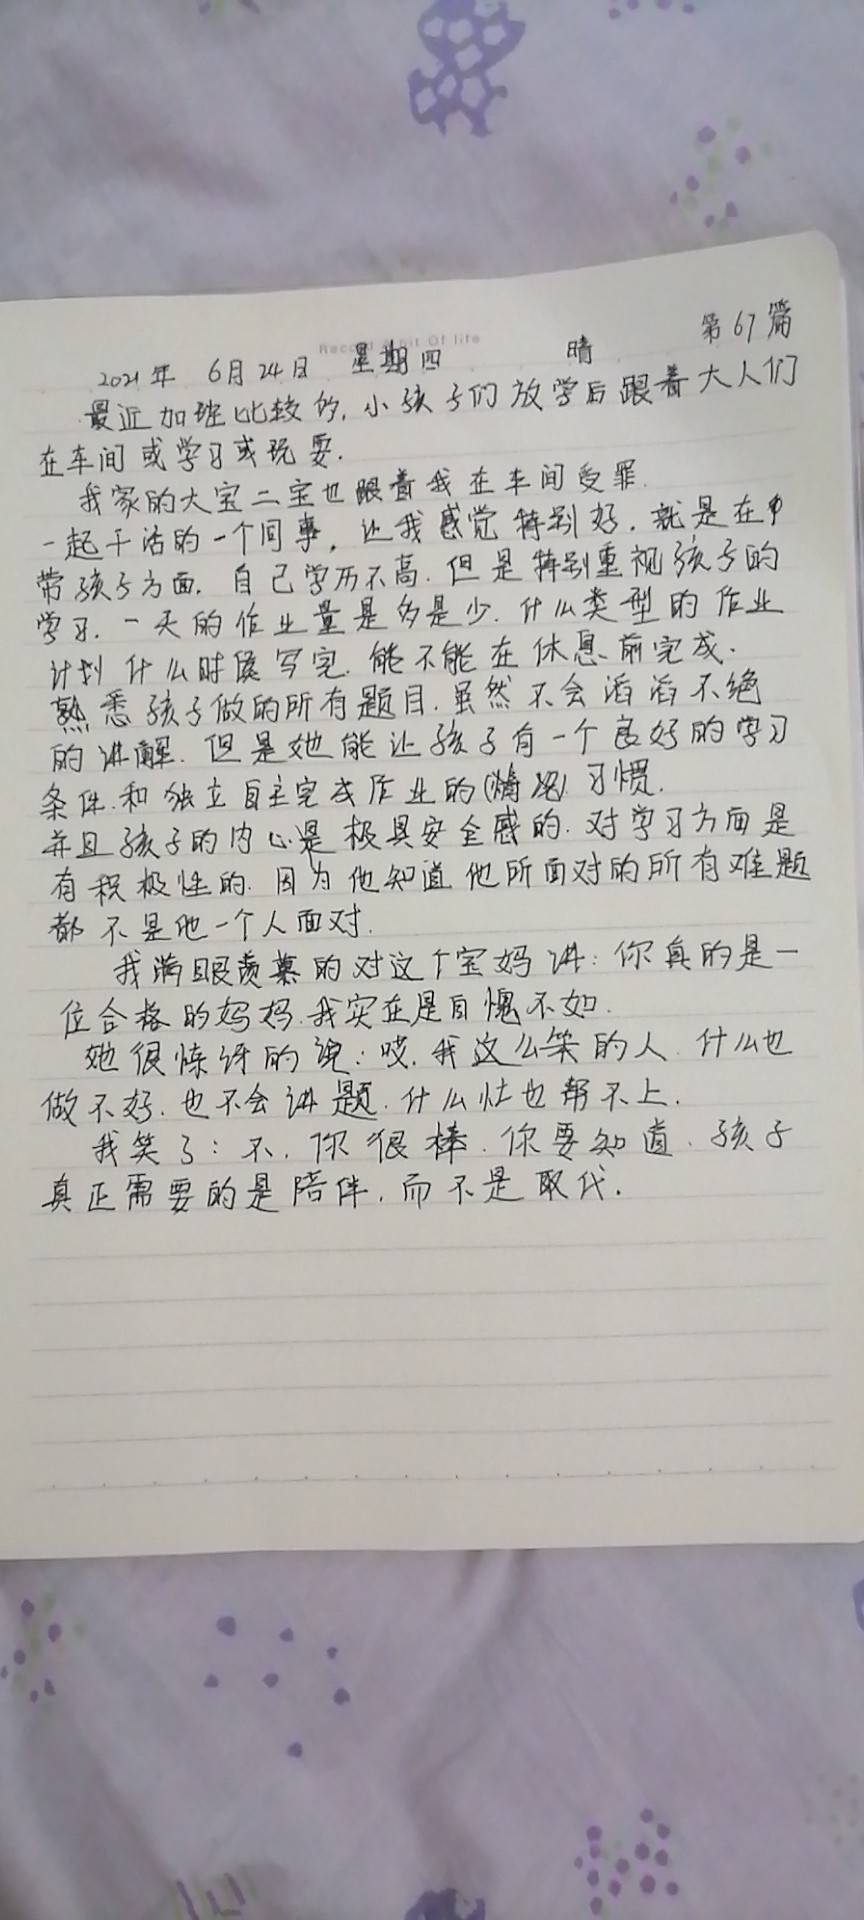 第67篇
Record a bit Of life
2021年 6月24日 星期四 晴
最近加班比较多,小孩子们放学后跟着大人们
在车间或学习或玩耍.
我家的大宝二宝也跟着我在车间受罪.
一起干活的一个同事,让我感觉特别好.就是在
带孩子方面.自己学历不高.但是特别重视孩子的
学习.一天的作业量是多是少.什么类型的作业
计划什么时候写完.能不能在休息前完成.
熟悉孩子做的所有题目.虽然不会滔滔不绝
的讲解.但是她能让孩子有一个良好的学习
条件.和独立自主完成作业的(情况)习惯.
并且孩子的内心是极具安全感的.对学习方面是
有积极性的.因为他知道他所面对的所有难题
都不是他一个人面对.
我满眼羡慕的对这个宝妈讲:你真的是一
位合格的妈妈.我实在是自愧不如.
她很惊讶的说:哎.我这么笨的人.什么也
做不好.也不会讲题.什么忙也帮不上.
我笑了:不.你很棒.你要知道.孩子
真正需要的是陪伴.而不是取代.